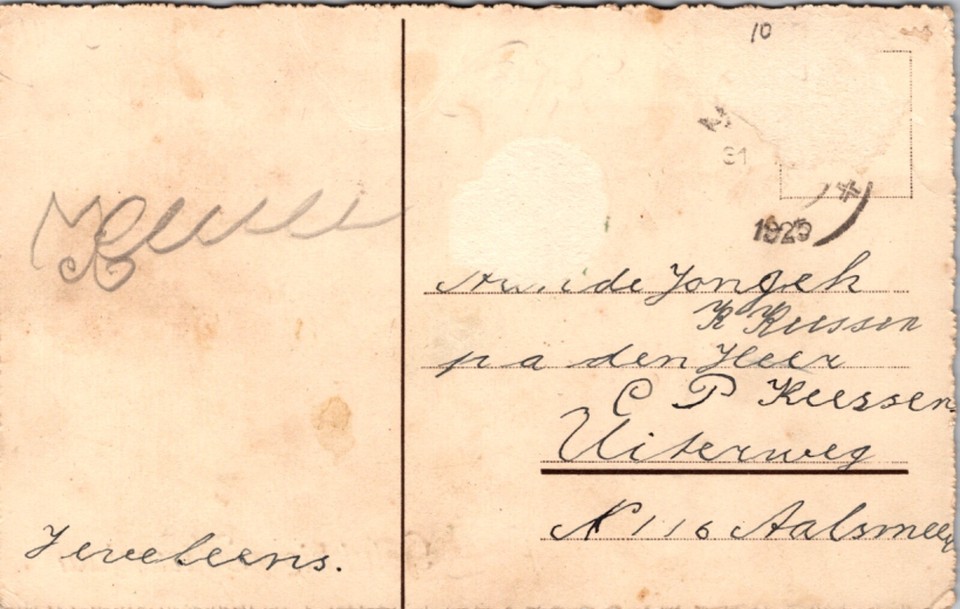 10
31
1929
de Jongeh
K Keessen
p a den Heer
C P Keessen
Uiterweg
N 116 Aalsmeer